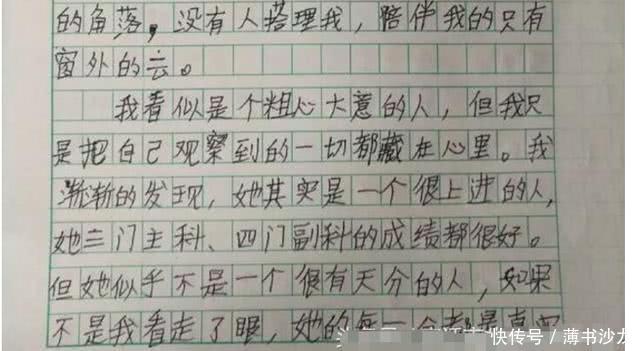 的角落，没有人搭理我，陪伴我的只有
窗外的云。
我看似是个粗心大意的人，但我只
是把自己观察到的一切都藏在心里。我
渐渐的发现，她其实是一个很上进的人，
她三门主科、四门副科的成绩都很好。
但她似乎不是一个很有天分的人，如果
不是我看走了眼，她的每一
快传号／薄书沙龙